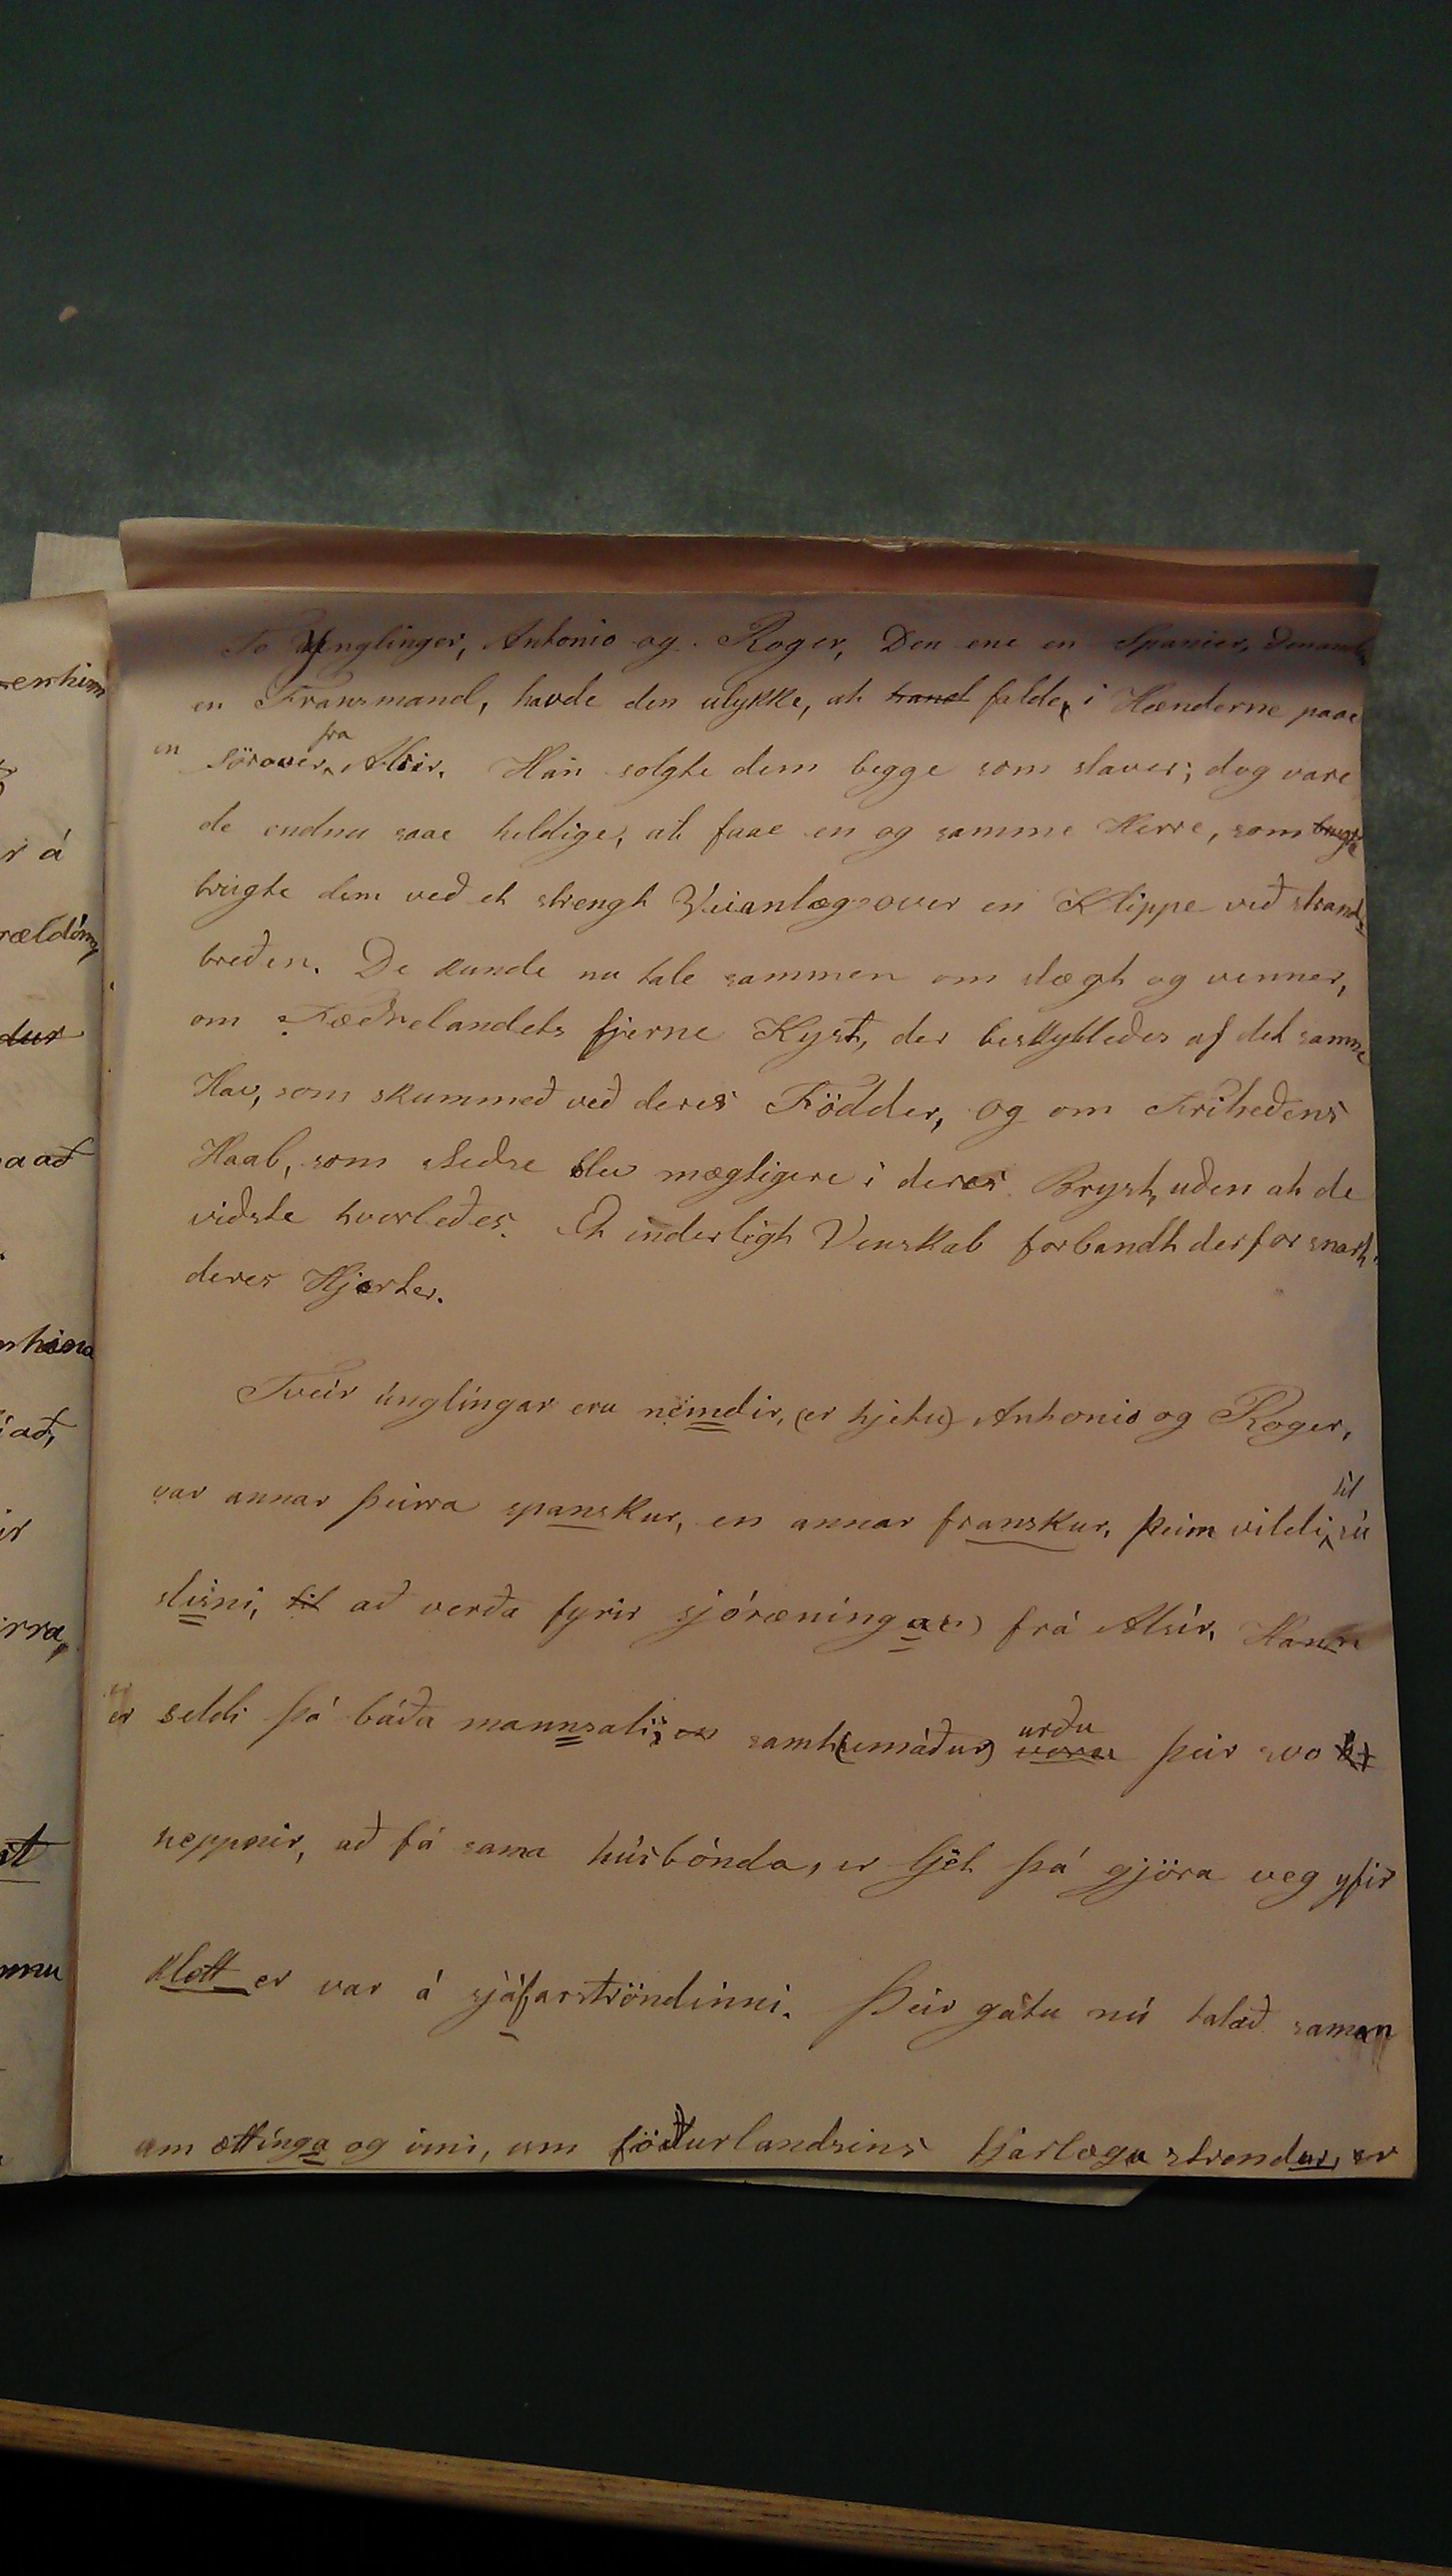 To Ynglinger, Antonio og Roger, Den ene en Spanier, den anden
en Fransmand, havde den ulykke, at hand falde i Hænderne paae
en Sörover fra Alsir. Han solgte dem begge som slaver; dog vare
de endnu saae heldige, at faae en og samme Herre, som brugte
brugte dem með et strengt Veianlæg over en Klippe við strand-
breðen. De kunde nu tale sammen om slægt og venner,
om Fæðrelandets fjerne Kyst, der beskylleðes af det samme
Hav, som skummeð við deres Födder, og om Friheðens
Haab, som steðse blev mægtigere i deres Bryst, uðen at de
viðste hvorleðes. Et inderligt Venskab forbandt derfor snart
deres Hjerter.
Tveir únglíngar eru nemdir, (er hjetu) Antonio og Roger,
var annar þeirra spanskur, en annar franskur, þeim vildi til sú
slisni, til að verða fyrir sjóræníngae) frá Alsír. Hann
er seldi þá báða mannsali; en samt(emáður) urðu voru þeir svo
heppnir, að fá sama húsbónda, er ljet þá gjöra veg yfir
klett er var á sjáfarströndinni. Þeir gátu nú talað saman
um ættínga og vini, um föðurlandsins fjarlægu strendur, er
errhim
r á
rældóm
dur
a að
að,
ir
irra,